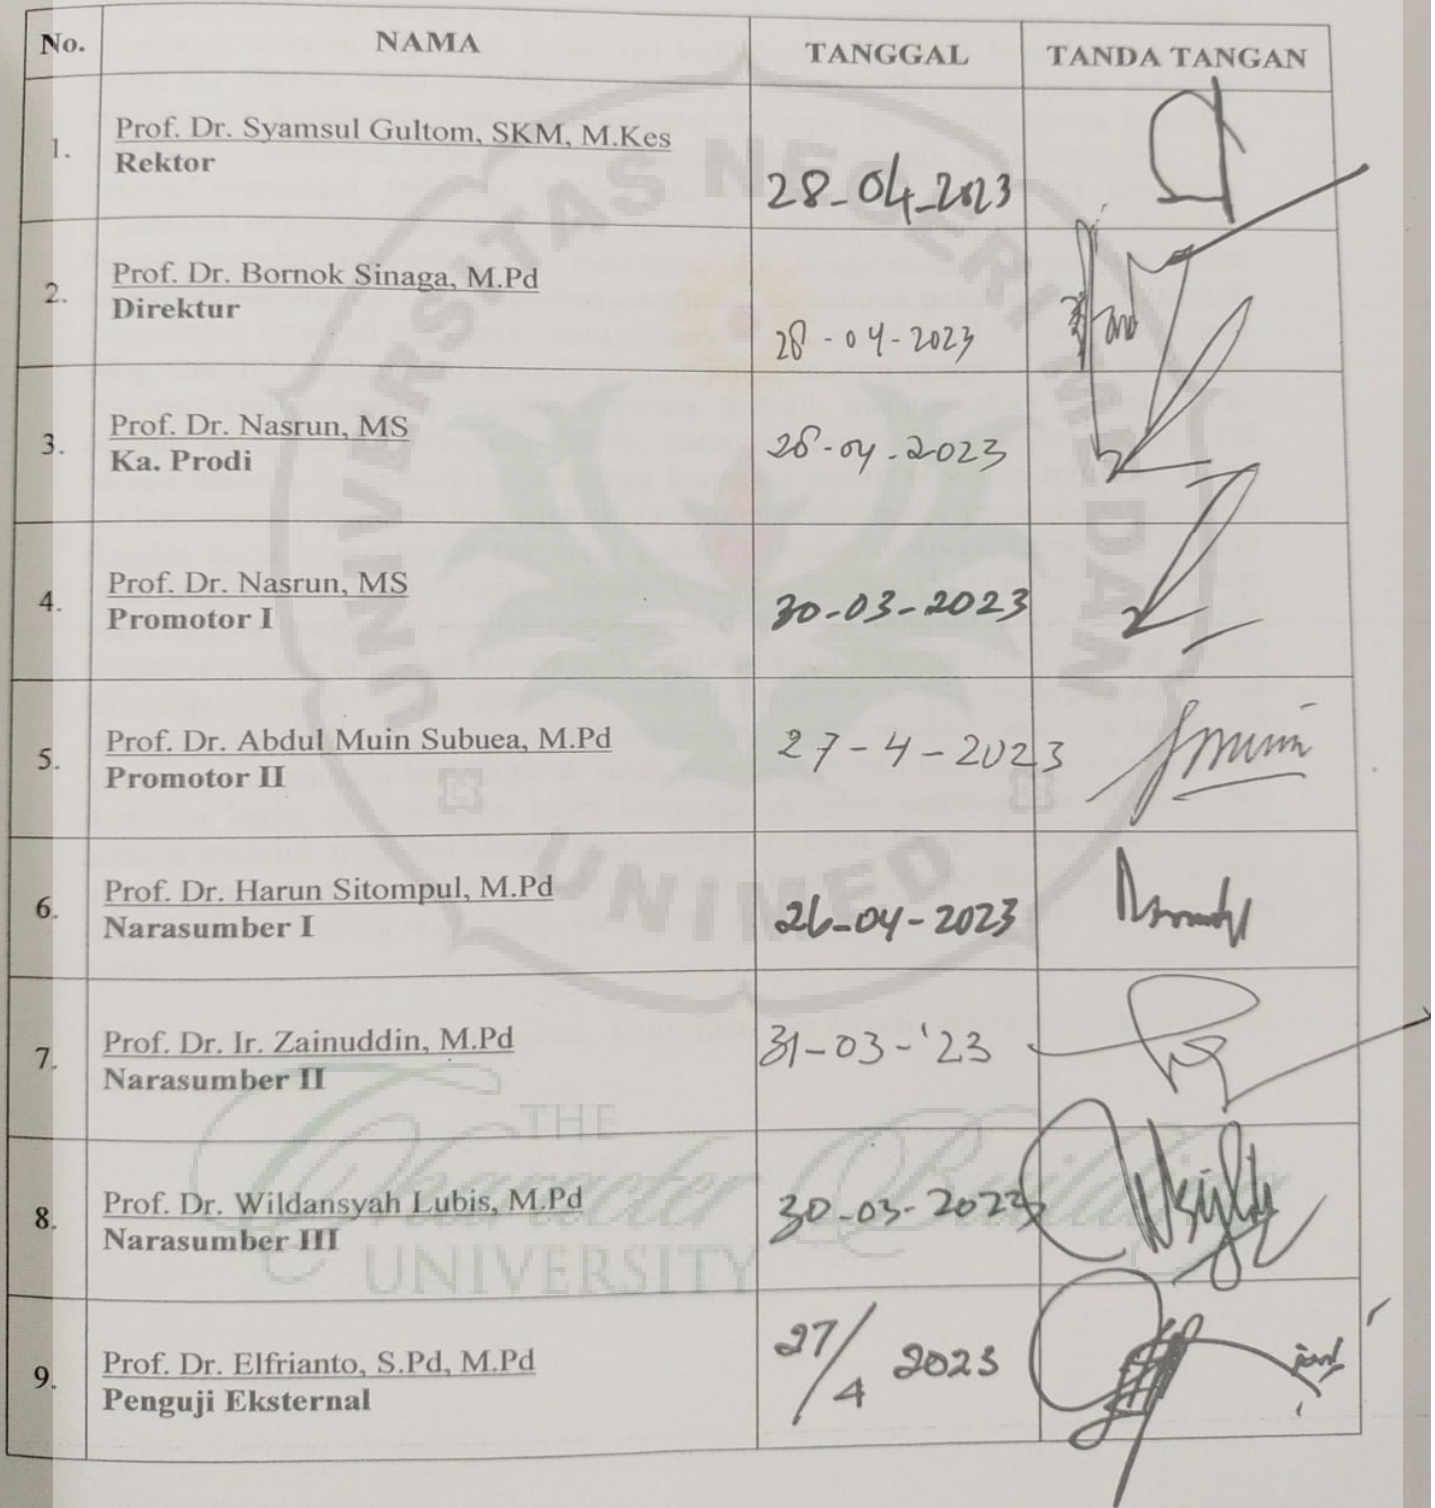 No. NAMA TANGGAL TANDA TANGAN
1. Prof. Dr. Syamsul Gultom, SKM, M.Kes
Rektor
28-04-2023
2. Prof. Dr. Bornok Sinaga, M.Pd
Direktur
28-04-2023
3. Prof. Dr. Nasrun, MS
Ka. Prodi
28-04-2023
4. Prof. Dr. Nasrun, MS
Promotor I
30-03-2023
5. Prof. Dr. Abdul Muin Subuea, M.Pd
Promotor II
27-4-2023
6. Prof. Dr. Harun Sitompul, M.Pd
Narasumber I
26-04-2023
7. Prof. Dr. Ir. Zainuddin, M.Pd
Narasumber II
31-03-'23
8. Prof. Dr. Wildansyah Lubis, M.Pd
Narasumber III
30-03-2023
9. Prof. Dr. Elfrianto, S.Pd, M.Pd
Penguji Eksternal
27/4 2023
UNIVERSITAS NEGERI MEDAN
UNIMED
THE
Character Building
UNIVERSITY